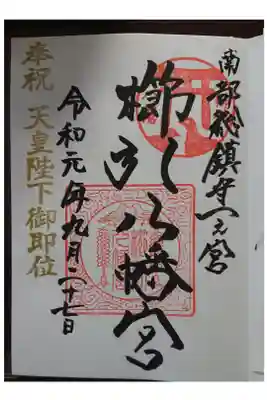 南部総鎮守一之宮
櫛引八幡宮
令和元年九月二十七日
奉祝 天皇陛下御即位